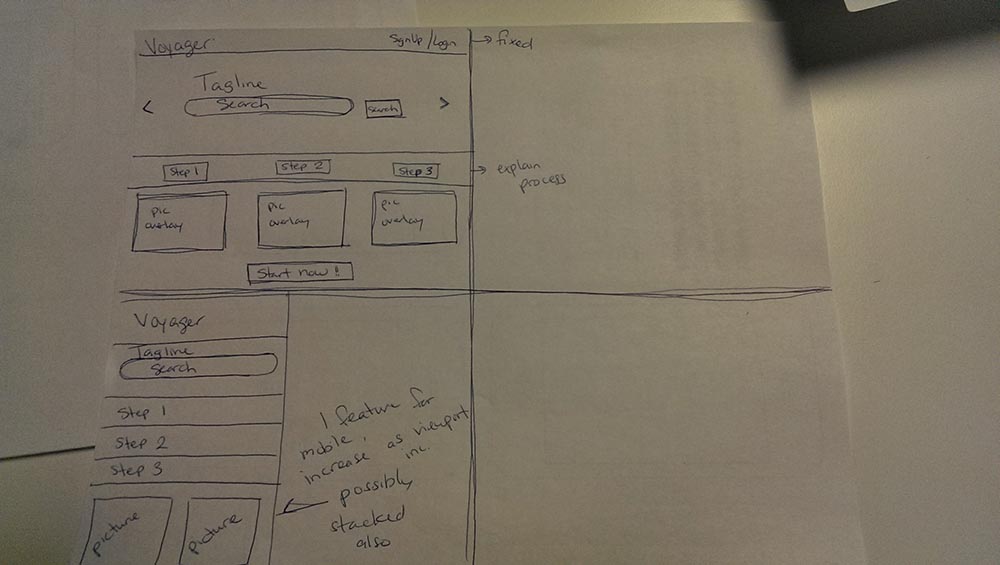 Voyager SignUp/Login → fixed
Tagline
< Search Search >
Step 1 Step 2 Step 3 → explain
process
pic pic pic
overlay overlay overlay
Start now!!
Voyager
Tagline
Search
Step 1
Step 2
Step 3
picture picture
1 feature for
mobile,
increase as viewport
inc.
possibly
stacked
also